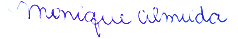 monique Almuda